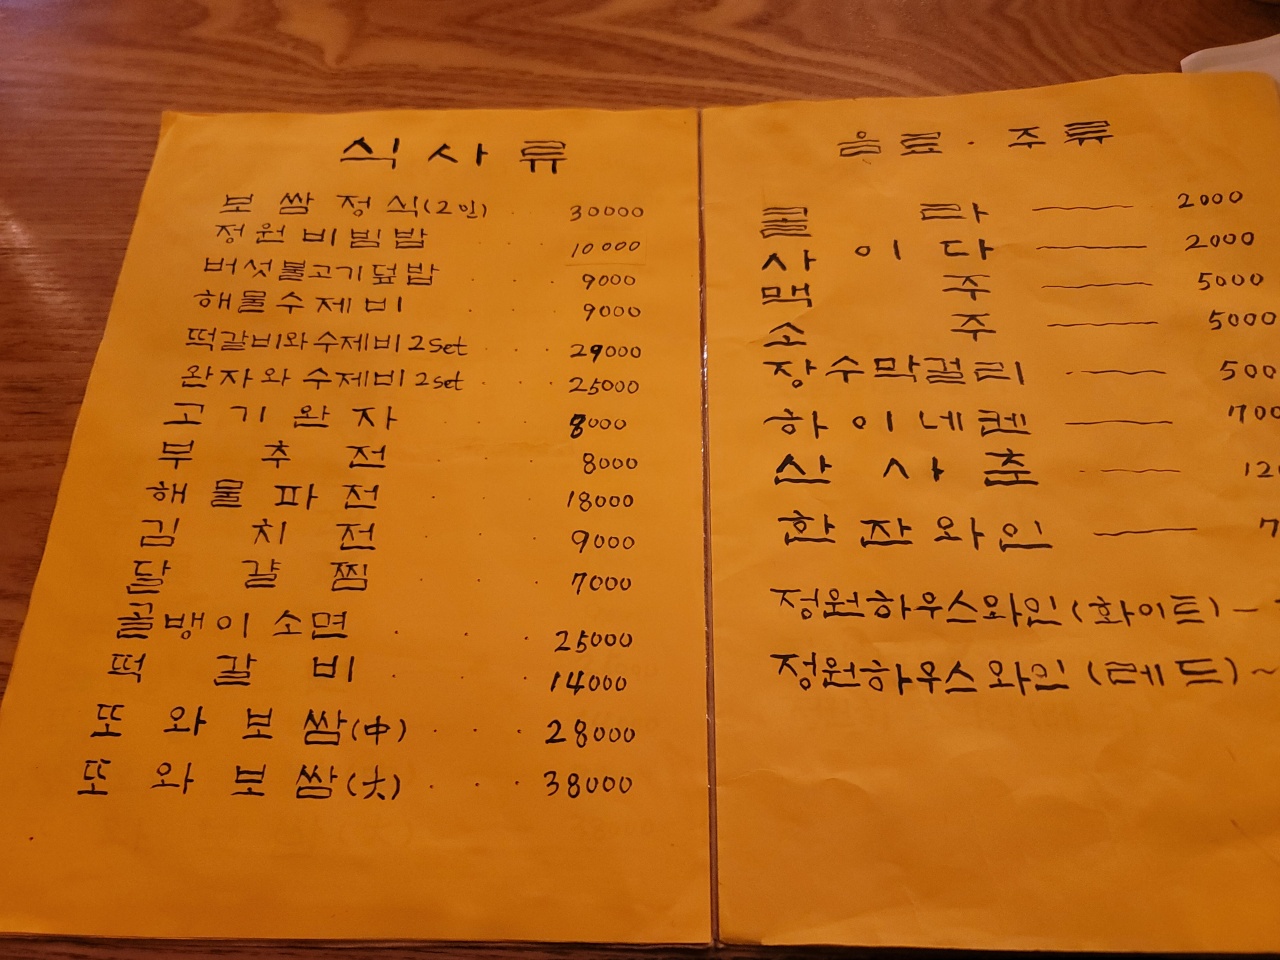 식사류
보쌈정식(2인) · · 30000
정원비빔밥 · · 10000
버섯불고기덮밥 · · · 9000
해물수제비 · · · 9000
떡갈비와수제비2set · · 29000
완자와수제비2set · · · 25000
고기완자 · · · 8000
부추전 · · · 8000
해물파전 · · · 18000
김치전 · · · 9000
달걀찜 · · · 7000
골뱅이소면 · · · 25000
떡갈비 · · · 14000
또와보쌈(中) · · · 28000
또와보쌈(大) · · · 38000
음료·주류
콜라 — 2000
사이다 — 2000
맥주 — 5000
소주 — 5000
장수막걸리 — 500
하이네켄 — 700
산사춘 — 120
한잔와인 — 7
정원하우스와인(화이트) ~
정원하우스와인(레드) ~